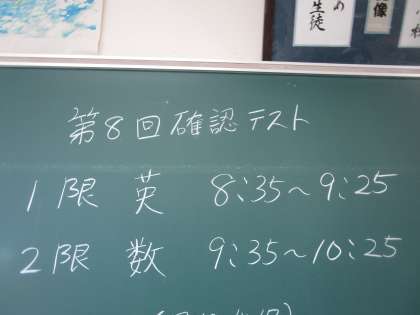 の 像
生徒
第8回確認テスト
1限 英 8:35～9:25
2限 数 9:35～10:25